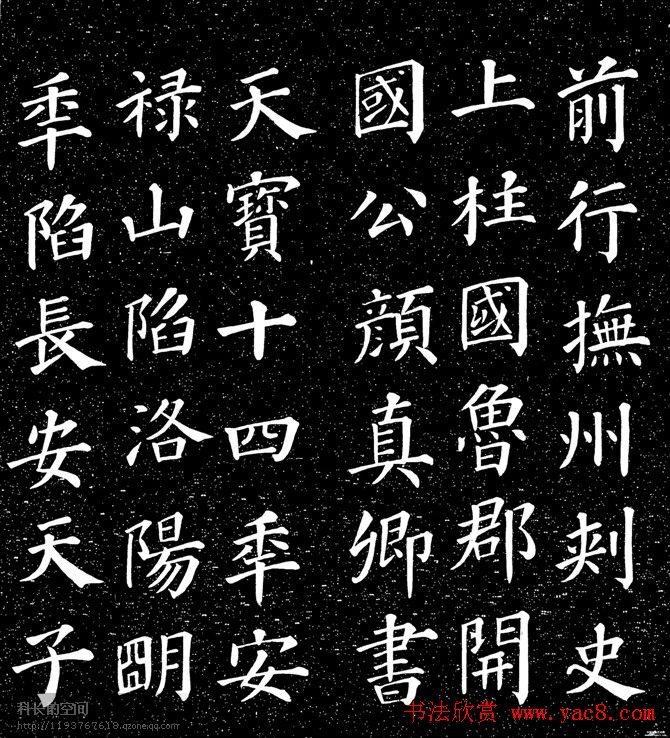 前行撫州刾史
上柱國魯郡開
國公顏真卿書
天寶十四秊安
禄山陷洛陽朙
秊陷長安天子
科长的空间
http://1193767618.qzone.qq.com
书法欣赏 www.yac8.com